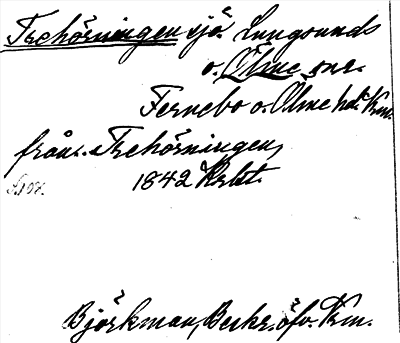 Trehörningen sjö Lungsunds
o. Ölme snr.
Fernebo o. Ölme hd. Krm.
från. Trehörningen,
1842 Krbt.
Björkman, Beskr. öfv. Krm.